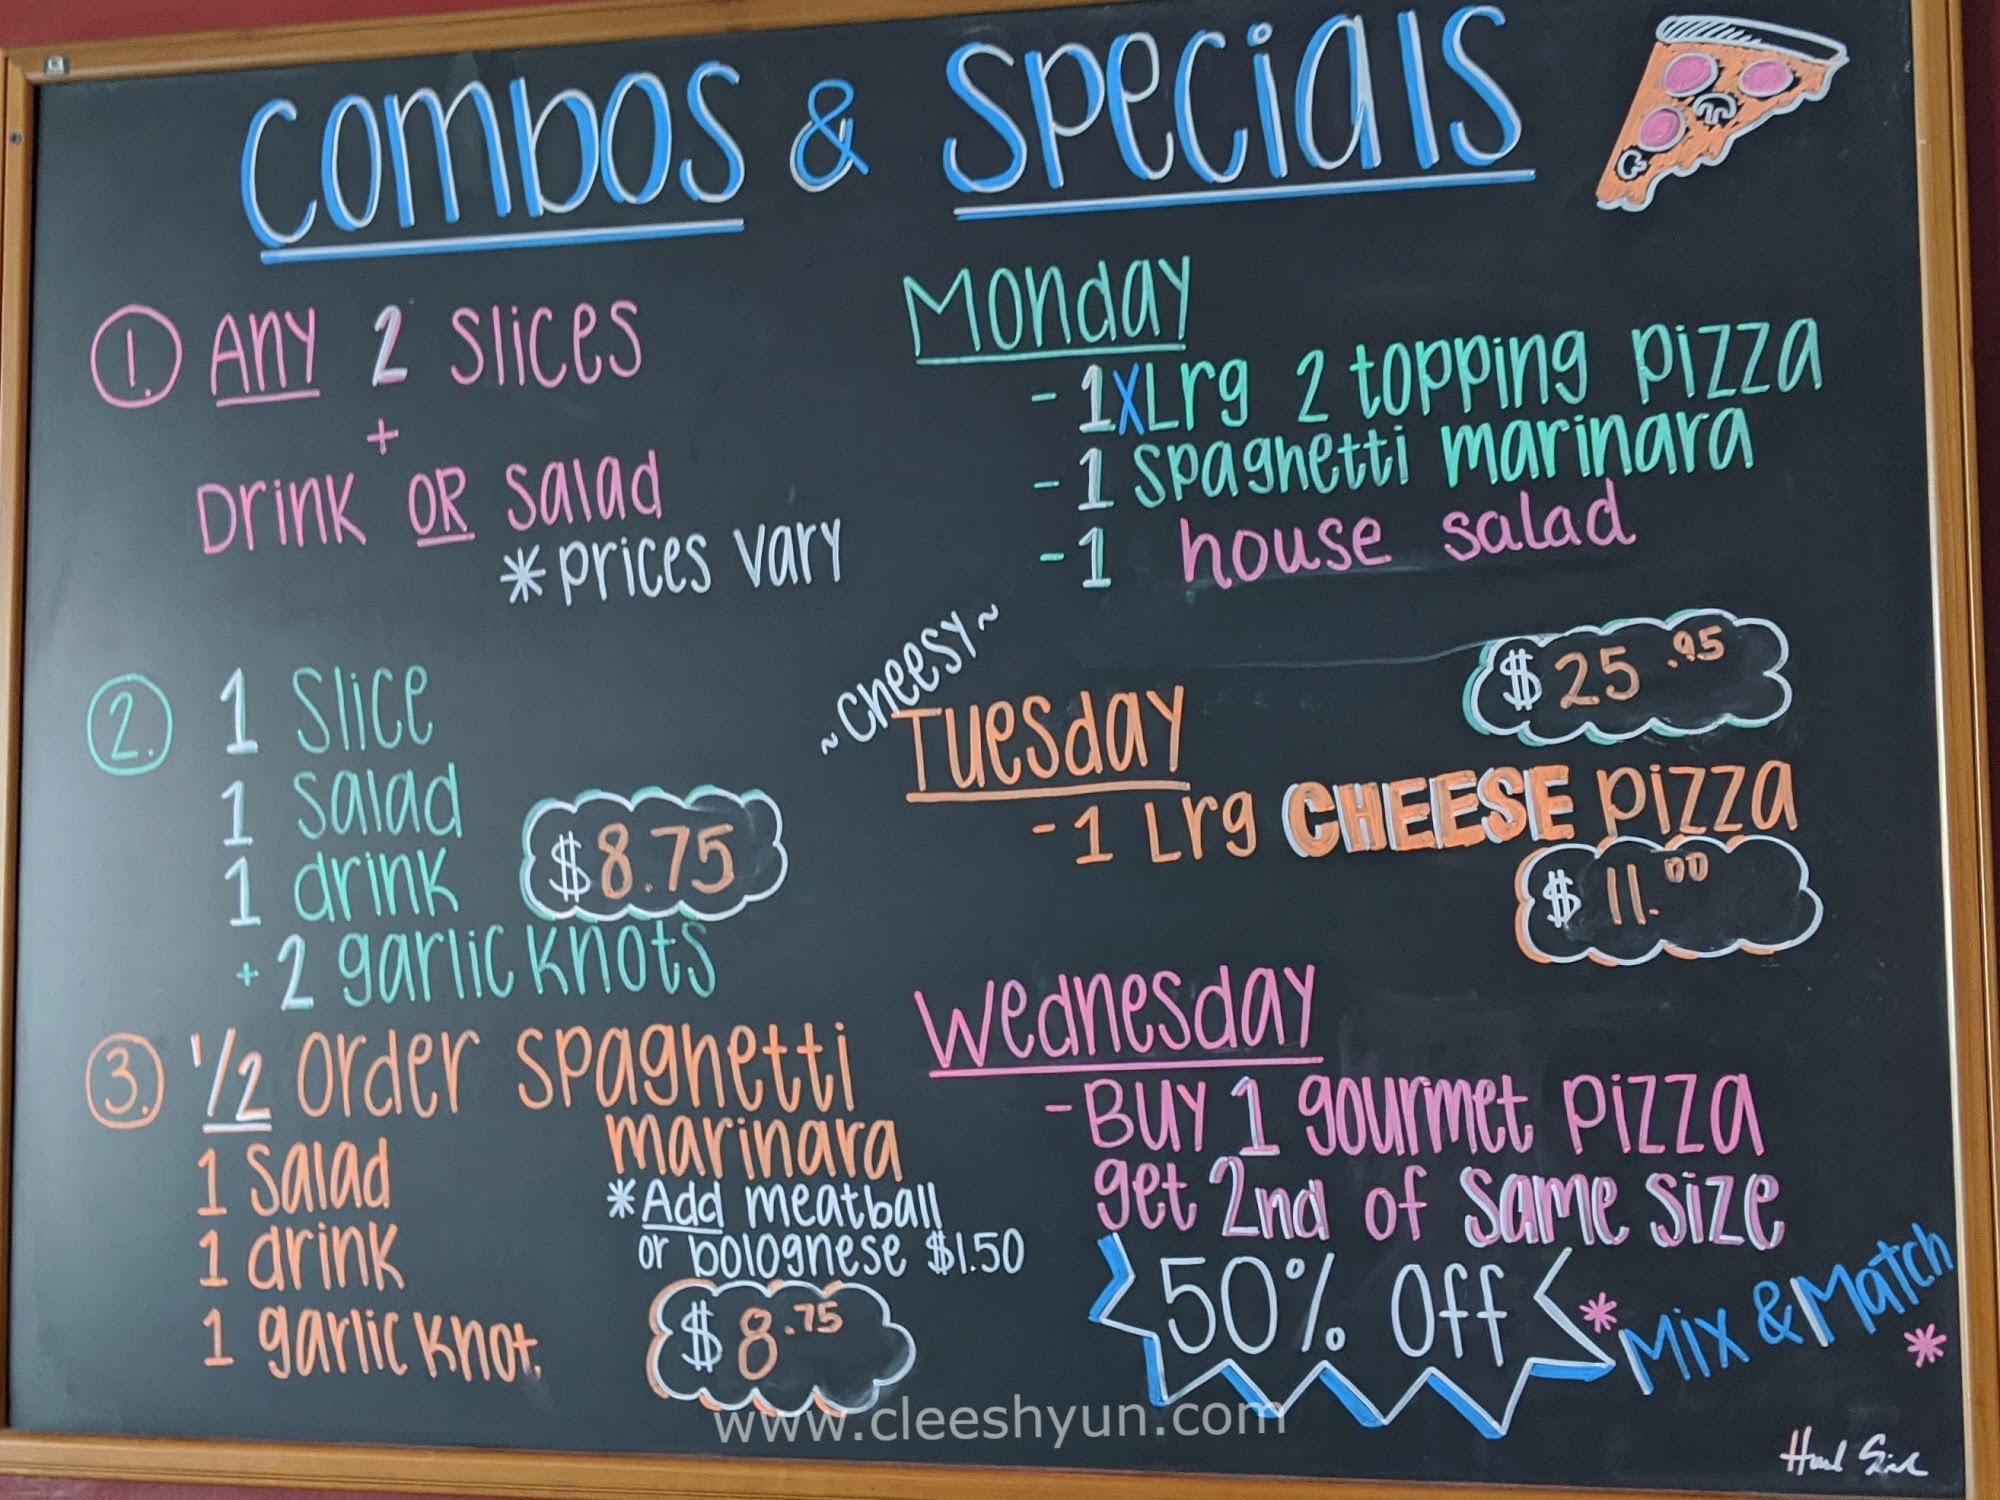 Combos & Specials
1. Any 2 slices
+
Drink OR salad
*prices vary
2. 1 slice
1 salad
1 drink
$8.75
+ 2 garlic knots
3. 1/2 order spaghetti
marinara
1 salad
*Add meatball
or bolognese $1.50
1 drink
1 garlic knot.
$8.75
Monday
- 1 XLrg 2 topping pizza
- 1 spaghetti marinara
- 1 house salad
$25.95
~Cheesy~
Tuesday
- 1 Lrg CHEESE pizza
$11.00
Wednesday
- Buy 1 gourmet pizza
get 2nd of same size
50% Off
*Mix & Match*
www.cleeshyun.com